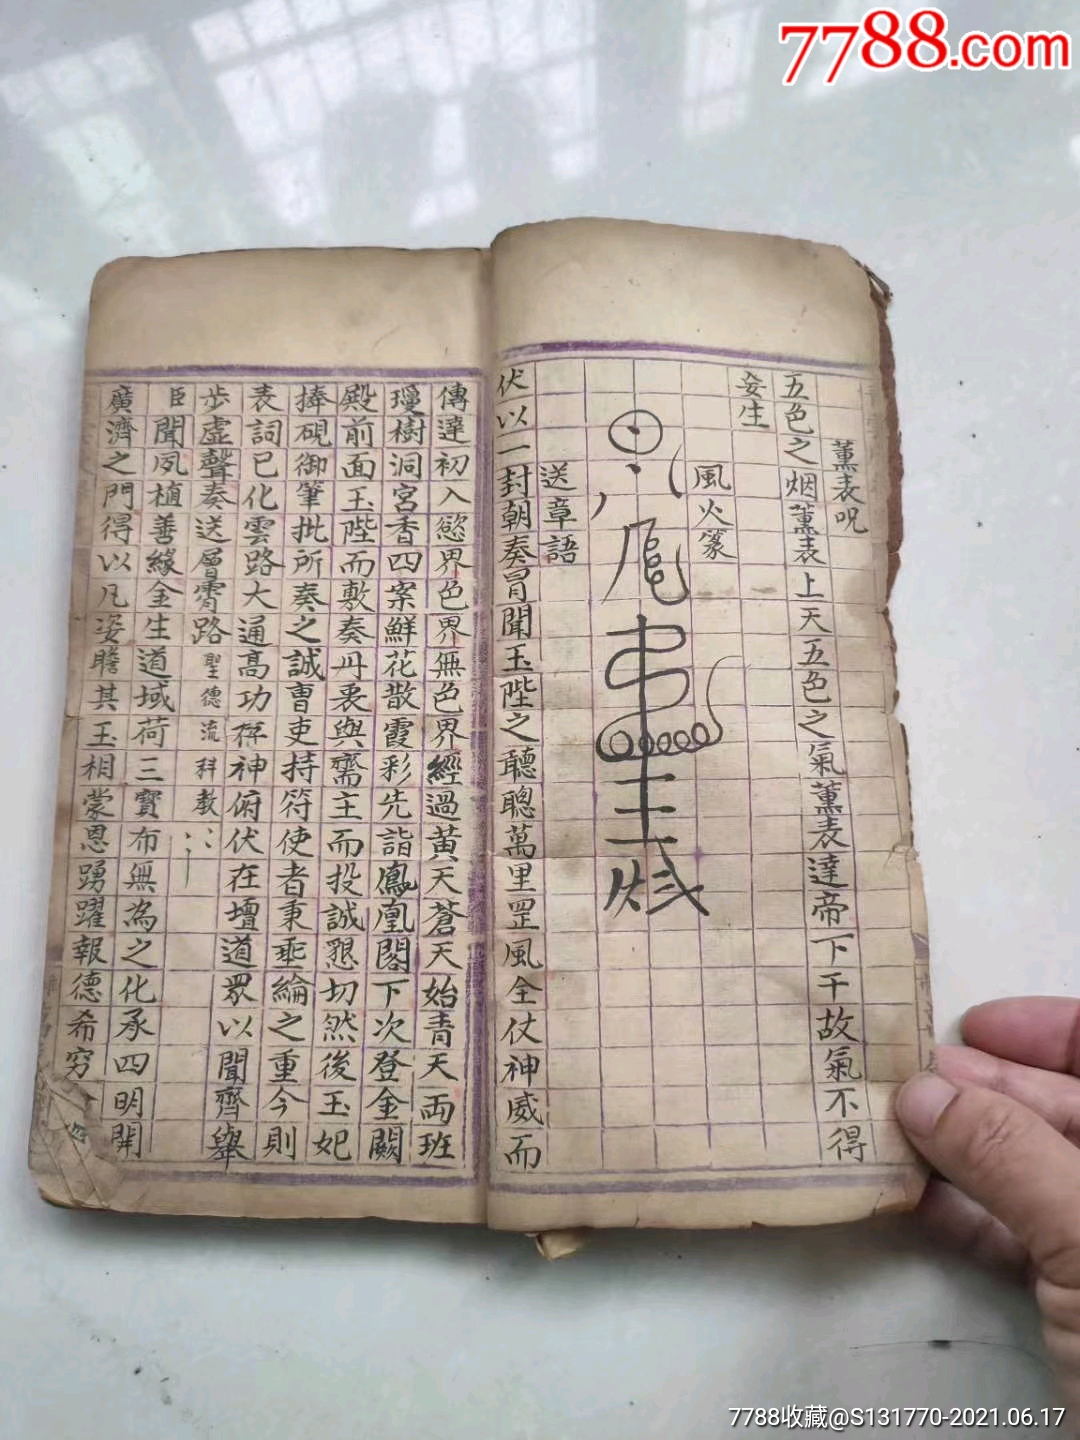 7788.com
薰表呪
五色之烟薰表上天五色之氣薰表達帝下干故氣不得
妄生
風火篆
送章語
伏以一封朝奏冒聞玉陛之聽聰萬里罡風全仗神威而
傳達初入慾界色界無色界經過黄天蒼天始青天両班
瓊樹洞宮香四案鮮花散霞彩先詣鳳凰閣下次登金闕
殿前面玉陛而敷奏丹衷與齋主而投誠懇切然後玉妃
捧硯御筆批所奏之誠曺吏持符使者秉乖綸之重今則
表詞已化雲路大通高功稱神俯伏在壇道眾以聞齊舉
步虛聲奏送層霄路聖德流科教
臣聞夙植善緣金生道域荷三寶布無為之化承四明開
廣濟之門得以凡姿瞻其玉相蒙恩踴躍報德希穷
7788收藏@S131770-2021.06.17